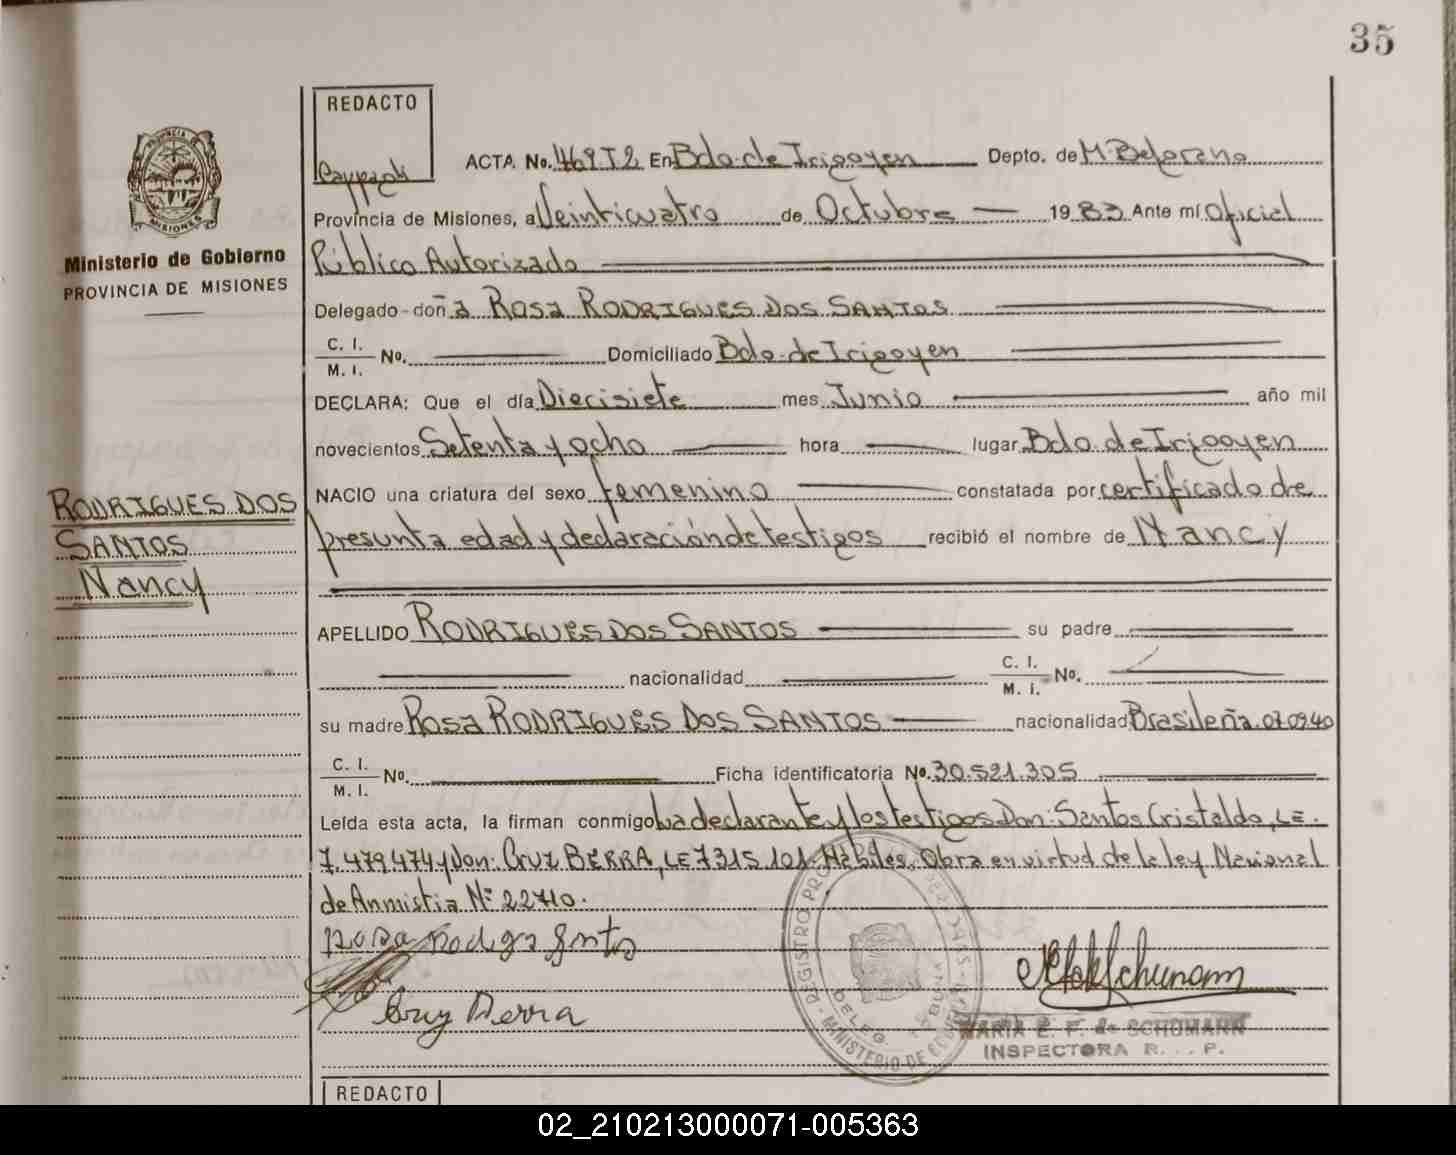 35
REDACTO
ACTA No. 469 T2 En Bdo. de Irigoyen Depto. de M. Belgrano
Provincia de Misiones, a Veinticuatro de Octubre 1983 Ante mí Oficial
Público Autorizado
Ministerio de Gobierno
PROVINCIA DE MISIONES
Delegado - doña Rosa RODRIGUES DOS SANTOS
C. I.
M. I. No. Domiciliado Bdo. de Irigoyen
DECLARA: Que el día Diecisiete mes Junio año mil
novecientos Setenta y ocho hora lugar Bdo. de Irigoyen
NACIO una criatura del sexo femenino constatada por certificado de
presunta edad y declaración de testigos recibió el nombre de Nancy
RODRIGUES DOS
SANTOS
Nancy
APELLIDO RODRIGUES DOS SANTOS su padre
nacionalidad C. I.
M. I. No.
su madre Rosa RODRIGUES DOS SANTOS nacionalidad Brasileña 07.09.40
C. I.
M. I. No. Ficha identificatoria No. 30.521.305
Leída esta acta, la firman conmigo La declarante y los testigos Don: Santos Cristaldo, LE.
7.479.474 y Don: Cruz BERRA, LE 7.315.101. Hábiles. Obra en virtud de la ley Nacional
de Anmistia Nº 22710.
Cruz Berra
MARIA E. F. de SCHUMANN
INSPECTORA R. . P.
REDACTO
02_210213000071-005363